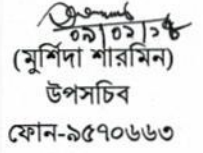 ০৯/০১/১৮
(মুর্শিদা শারমিন)
উপসচিব
ফোন-৯৫৭০৬৬৩